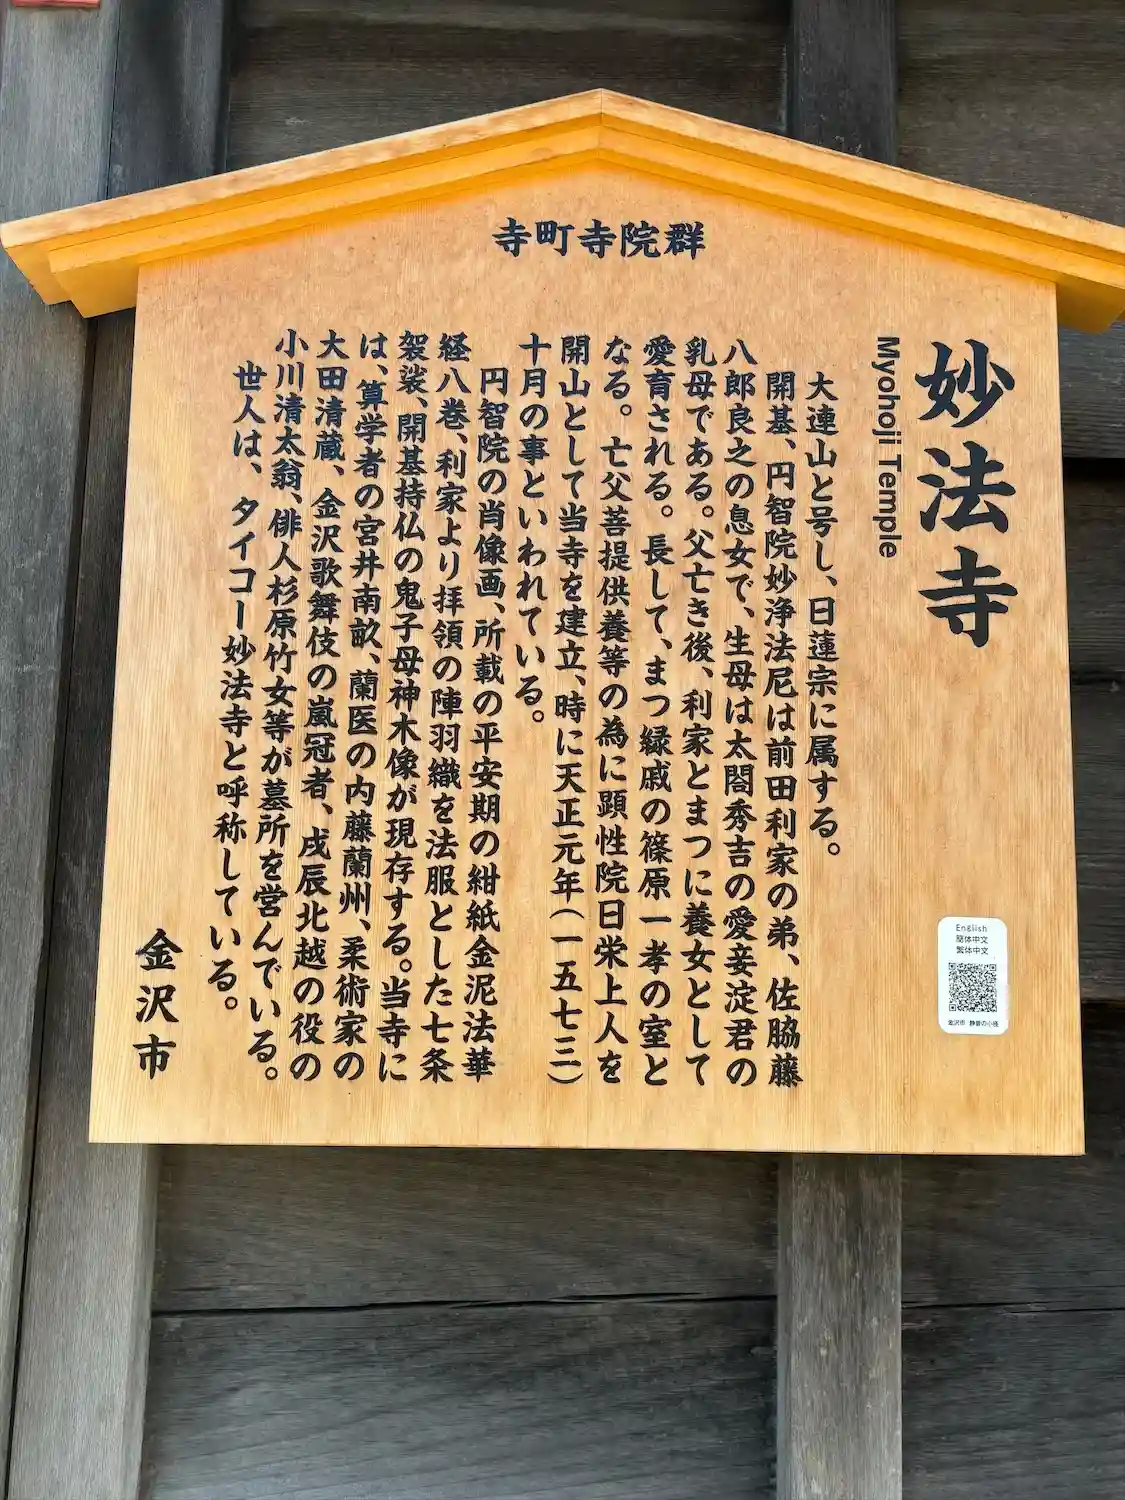 寺町寺院群
妙法寺
Myohoji Temple
大連山と号し、日蓮宗に属する。
開基、円智院妙浄法尼は前田利家の弟、佐脇藤
八郎良之の息女で、生母は太閤秀吉の愛妾淀君の
乳母である。父亡き後、利家とまつに養女として
愛育される。長して、まつ縁戚の篠原一孝の室と
なる。亡父菩提供養等の為に顕性院日栄上人を
開山として当寺を建立、時に天正元年（一五七三）
十月の事といわれている。
円智院の肖像画、所載の平安期の紺紙金泥法華
経八巻、利家より拝領の陣羽織を法服とした七条
袈裟、開基持仏の鬼子母神木像が現存する。当寺に
は、算学者の宮井南畝、蘭医の内藤蘭州、柔術家の
大田清蔵、金沢歌舞伎の嵐冠者、戌辰北越の役の
小川清太翁、俳人杉原竹女等が墓所を営んでいる。
世人は、タイコー妙法寺と呼称している。
金沢市
English
簡体中文
繁体中文
金沢市 静音の小径